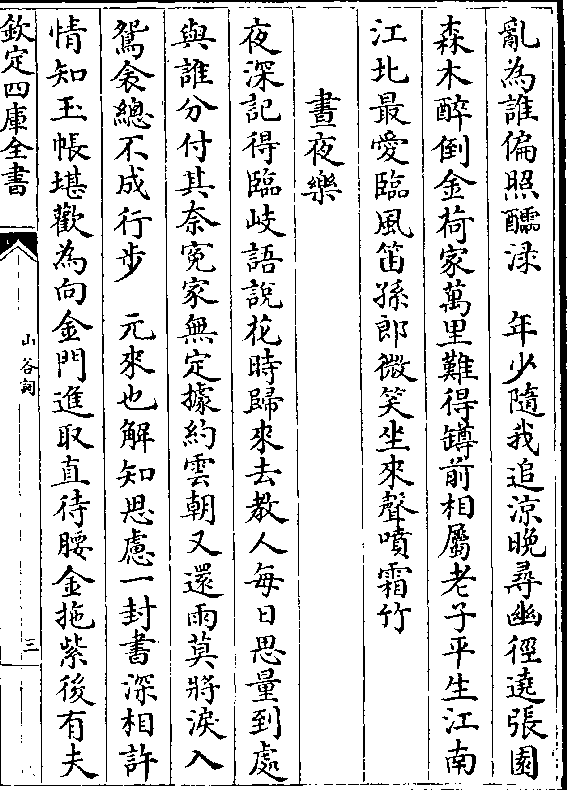 亂為誰偏照醽渌　年少隨我追涼晚尋幽徑遶張園
森木醉倒金荷家萬里難得罇前相屬老子平生江南
江北最愛臨風笛孫郎微笑坐來聲噴霜竹
晝夜樂
夜深記得臨岐語說花時歸來去教人每日思量到處
與誰分付其奈寃家無定據約雲朝又還雨莫將淚入
鴛衾總不成行步　元來也解知思慮一封書深相許
情知玉帳堪歡為向金門進取直待腰金拖紫後有夫
欽定四庫全書
山谷詞
三